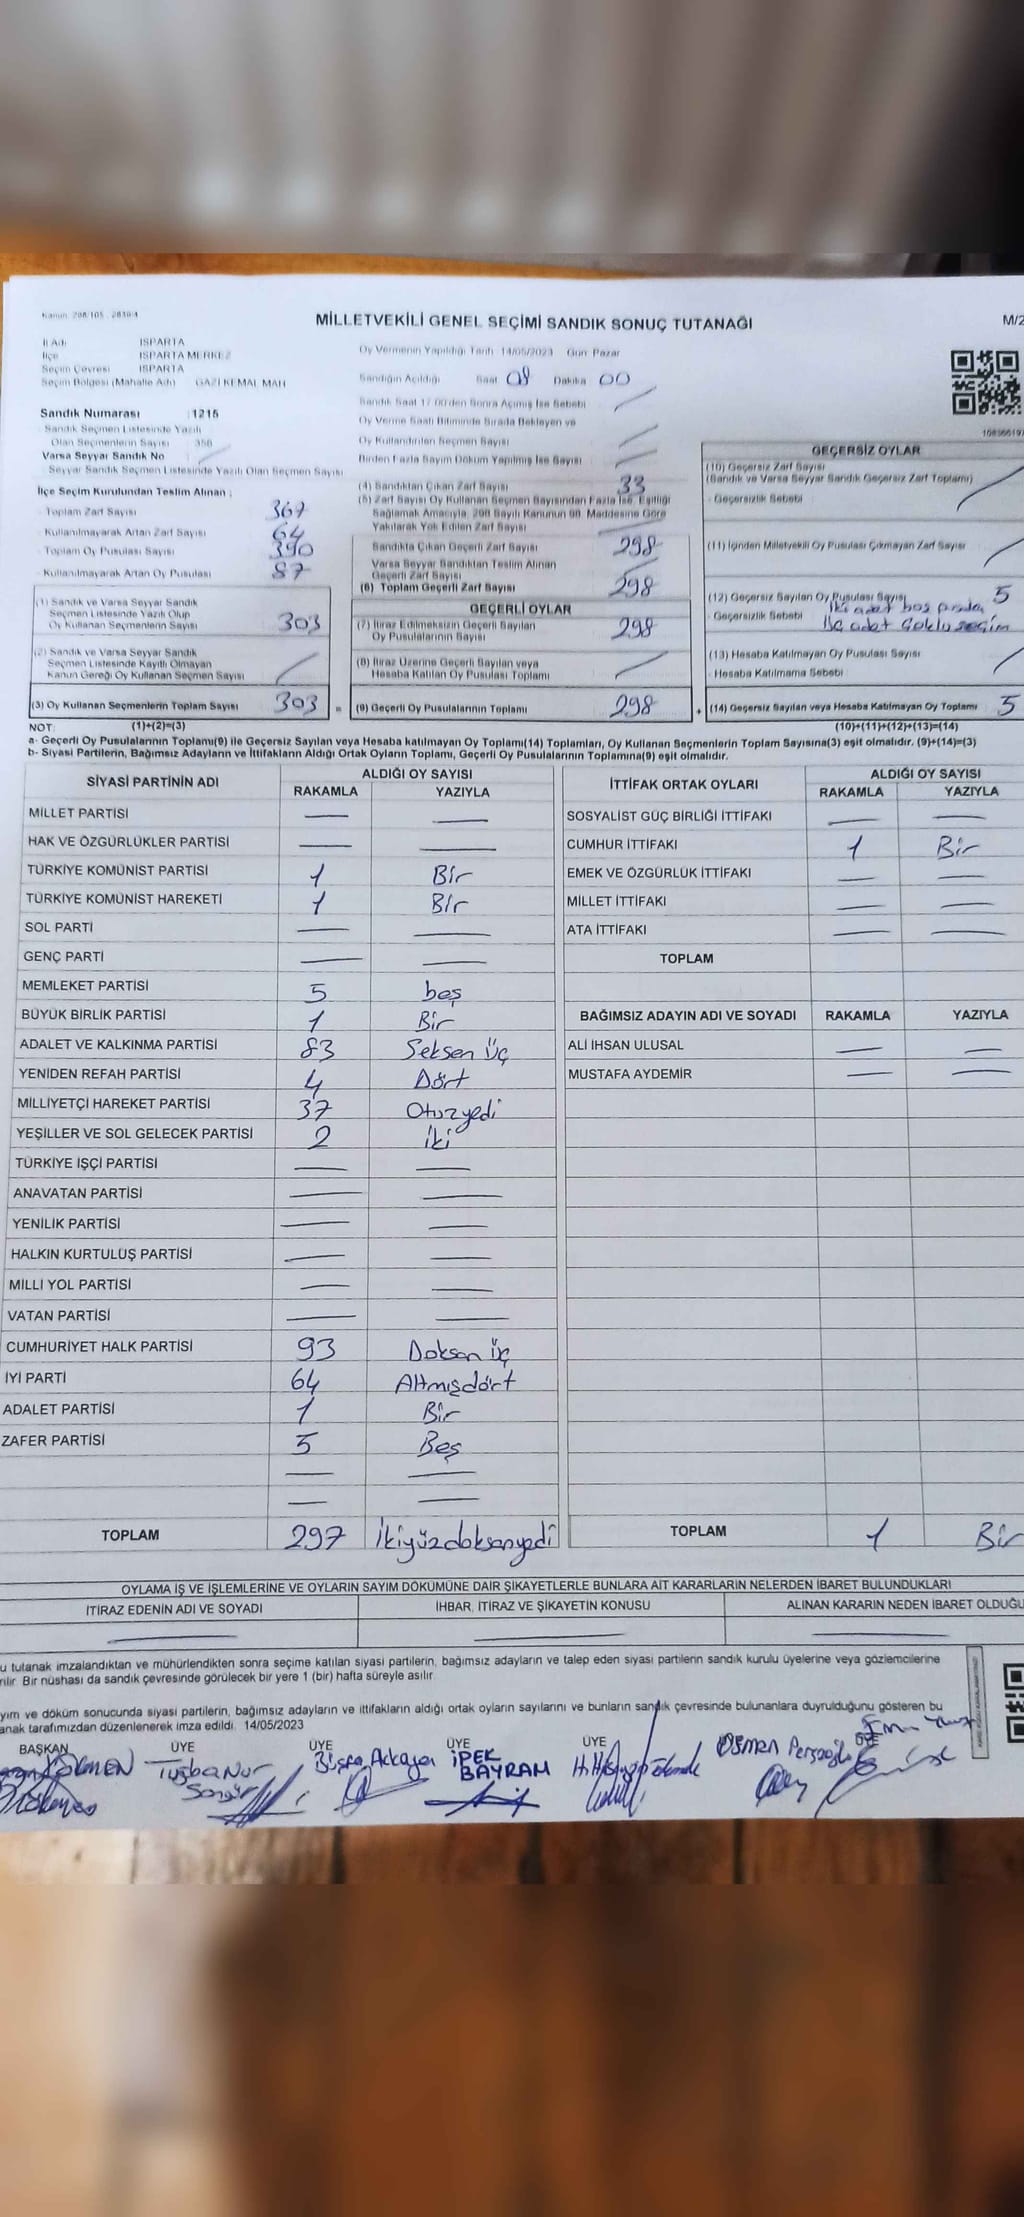 Kanun: 298/105 - 2839/4
MİLLETVEKİLİ GENEL SEÇİMİ SANDIK SONUÇ TUTANAĞI
M/2
İl Adı ISPARTA
İlçe ISPARTA MERKEZ
Seçim Çevresi ISPARTA
Seçim Bölgesi (Mahalle Adı) GAZİ KEMAL MAH
Sandık Numarası : 1215
Sandık Seçmen Listesinde Yazılı
Olan Seçmenlerin Sayısı 356
Varsa Seyyar Sandık No
Seyyar Sandık Seçmen Listesinde Yazılı Olan Seçmen Sayısı
İlçe Seçim Kurulundan Teslim Alınan :
Toplam Zarf Sayısı 367
Kullanılmayarak Artan Zarf Sayısı 64
Toplam Oy Pusulası Sayısı 390
Kullanılmayarak Artan Oy Pusulası 87
(1) Sandık ve Varsa Seyyar Sandık
Seçmen Listesinde Yazılı Olup
Oy Kullanan Seçmenlerin Sayısı 303
(2) Sandık ve Varsa Seyyar Sandık
Seçmen Listesinde Kayıtlı Olmayan
Kanun Gereği Oy Kullanan Seçmen Sayısı
(3) Oy Kullanan Seçmenlerin Toplam Sayısı 303 =
Oy Vermenin Yapıldığı Tarih 14/05/2023 Gün Pazar
Sandığın Açıldığı Saat 08 Dakika 00
Sandık Saat 17.00'den Sonra Açılmış İse Sebebi
Oy Verme Saati Bitiminde Sırada Bekleyen ve
Oy Kullandırılan Seçmen Sayısı
Birden Fazla Sayım Döküm Yapılmış İse Sayısı
(4) Sandıktan Çıkan Zarf Sayısı 33
(5) Zarf Sayısı Oy Kullanan Seçmen Sayısından Fazla İse, Eşitliği
Sağlamak Amacıyla, 298 Sayılı Kanunun 98. Maddesine Göre
Yakılarak Yok Edilen Zarf Sayısı
Sandıkta Çıkan Geçerli Zarf Sayısı 298
Varsa Seyyar Sandıktan Teslim Alınan
Geçerli Zarf Sayısı
(6) Toplam Geçerli Zarf Sayısı 298
GEÇERLİ OYLAR
(7) İtiraz Edilmeksizin Geçerli Sayılan
Oy Pusulalarının Sayısı 298
(8) İtiraz Üzerine Geçerli Sayılan veya
Hesaba Katılan Oy Pusulası Toplamı
(9) Geçerli Oy Pusulalarının Toplamı 298 +
GEÇERSİZ OYLAR
(10) Geçersiz Zarf Sayısı
(Sandık ve Varsa Seyyar Sandık Geçersiz Zarf Toplamı)
- Geçersizlik Sebebi
(11) İçinden Milletvekili Oy Pusulası Çıkmayan Zarf Sayısı
(12) Geçersiz Sayılan Oy Pusulası Sayısı 5
- Geçersizlik Sebebi İki adet boş pusula
Üç adet Çoklu seçim
(13) Hesaba Katılmayan Oy Pusulası Sayısı
- Hesaba Katılmama Sebebi
(14) Geçersiz Sayılan veya Hesaba Katılmayan Oy Toplamı 5
NOT: (1)+(2)=(3) (10)+(11)+(12)+(13)=(14)
a- Geçerli Oy Pusulalarının Toplamı(9) ile Geçersiz Sayılan veya Hesaba katılmayan Oy Toplamı(14) Toplamları, Oy Kullanan Seçmenlerin Toplam Sayısına(3) eşit olmalıdır. (9)+(14)=(3)
b- Siyasi Partilerin, Bağımsız Adayların ve İttifakların Aldığı Ortak Oyların Toplamı, Geçerli Oy Pusulalarının Toplamına(9) eşit olmalıdır.
SİYASİ PARTİNİN ADI ALDIĞI OY SAYISI
RAKAMLA YAZIYLA
MİLLET PARTİSİ — —
HAK VE ÖZGÜRLÜKLER PARTİSİ — —
TÜRKİYE KOMÜNİST PARTİSİ 1 Bir
TÜRKİYE KOMÜNİST HAREKETİ 1 Bir
SOL PARTİ — —
GENÇ PARTİ — —
MEMLEKET PARTİSİ 5 beş
BÜYÜK BİRLİK PARTİSİ 1 Bir
ADALET VE KALKINMA PARTİSİ 83 Seksen Üç
YENİDEN REFAH PARTİSİ 4 Dört
MİLLİYETÇİ HAREKET PARTİSİ 37 Otuzyedi
YEŞİLLER VE SOL GELECEK PARTİSİ 2 İki
TÜRKİYE İŞÇİ PARTİSİ — —
ANAVATAN PARTİSİ — —
YENİLİK PARTİSİ — —
HALKIN KURTULUŞ PARTİSİ — —
MİLLİ YOL PARTİSİ — —
VATAN PARTİSİ — —
CUMHURİYET HALK PARTİSİ 93 Doksan üç
İYİ PARTİ 64 Altmışdört
ADALET PARTİSİ 1 Bir
ZAFER PARTİSİ 5 Beş
— —
— —
TOPLAM 297 İkiyüzdoksanyedi
İTTİFAK ORTAK OYLARI ALDIĞI OY SAYISI
RAKAMLA YAZIYLA
SOSYALİST GÜÇ BİRLİĞİ İTTİFAKI — —
CUMHUR İTTİFAKI 1 Bir
EMEK VE ÖZGÜRLÜK İTTİFAKI — —
MİLLET İTTİFAKI — —
ATA İTTİFAKI — —
TOPLAM
BAĞIMSIZ ADAYIN ADI VE SOYADI RAKAMLA YAZIYLA
ALİ İHSAN ULUSAL — —
MUSTAFA AYDEMİR — —
TOPLAM 1 Bir
OYLAMA İŞ VE İŞLEMLERİNE VE OYLARIN SAYIM DÖKÜMÜNE DAİR ŞİKAYETLERLE BUNLARA AİT KARARLARIN NELERDEN İBARET BULUNDUKLARI
İTİRAZ EDENİN ADI VE SOYADI İHBAR, İTİRAZ VE ŞİKAYETİN KONUSU ALINAN KARARIN NEDEN İBARET OLDUĞU
— — —
u tutanak imzalandıktan ve mühürlendikten sonra seçime katılan siyasi partilerin, bağımsız adayların ve talep eden siyasi partilerin sandık kurulu üyelerine veya gözlemcilerine
rilir. Bir nüshası da sandık çevresinde görülecek bir yere 1 (bir) hafta süreyle asılır.
yım ve döküm sonucunda siyasi partilerin, bağımsız adayların ve ittifakların aldığı ortak oyların sayılarını ve bunların sandık çevresinde bulunanlara duyrulduğunu gösteren bu
anak tarafımızdan düzenlenerek imza edildi. 14/05/2023
BAŞKAN ÜYE ÜYE ÜYE ÜYE ÜYE
Tuğba Nur Büşra Akkaya İPEK BAYRAM Osman